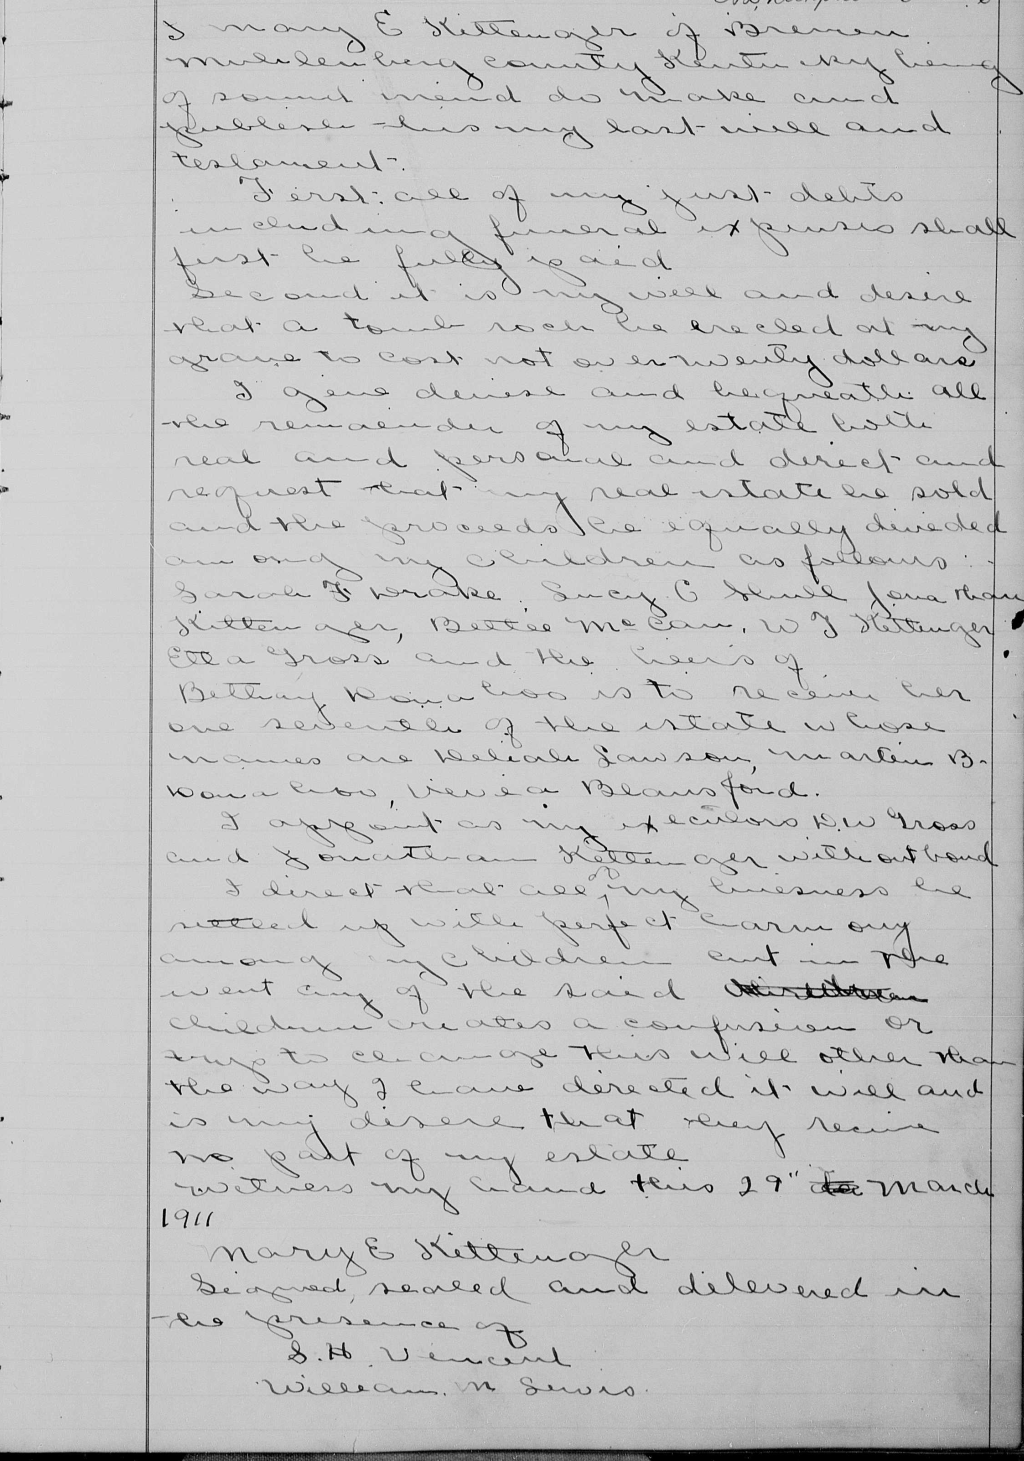 I Mary E Kittenger of Bremen
Muhlenberg County Kentucky being
of sound mind do make and
publish this my last will and
testament.
First: all of my just debts
including funeral expenses shall
first be fully paid
Second it is my will and desire
that a tomb rock be erected at my
grave to cost not over twenty dollars
I give devise and bequeath all
the remainder of my estate both
real and personal and direct and
request that my real estate be sold
and the proceeds be equally divided
among my children as follows:
Sarah F Drake, Lucy C Shull Jonathan
Kittenger, Bettie McCan, W J Kittenger
Etta Gross and the heirs of
Bethay Donahoo is to receive her
one seventh of the estate whose
names are Deliah Lawson, Martin B.
Donahoo, Blansford.
I appoint as my executors D.W Gross
and Jonathan Kittenger without bond
I direct that all of my buisness be
settled up with perfect harmony
among my children but in the
went any of the said
children creates a confusion or
trys to change this will other than
the way I have directed it will and
is my desire that they receive
no part of my estate
Witness my hand this 29" March
1911
Mary E Kittenger
Signed, sealed and delivered in
the presence of
S. H. Vincent
William. M Lewis.